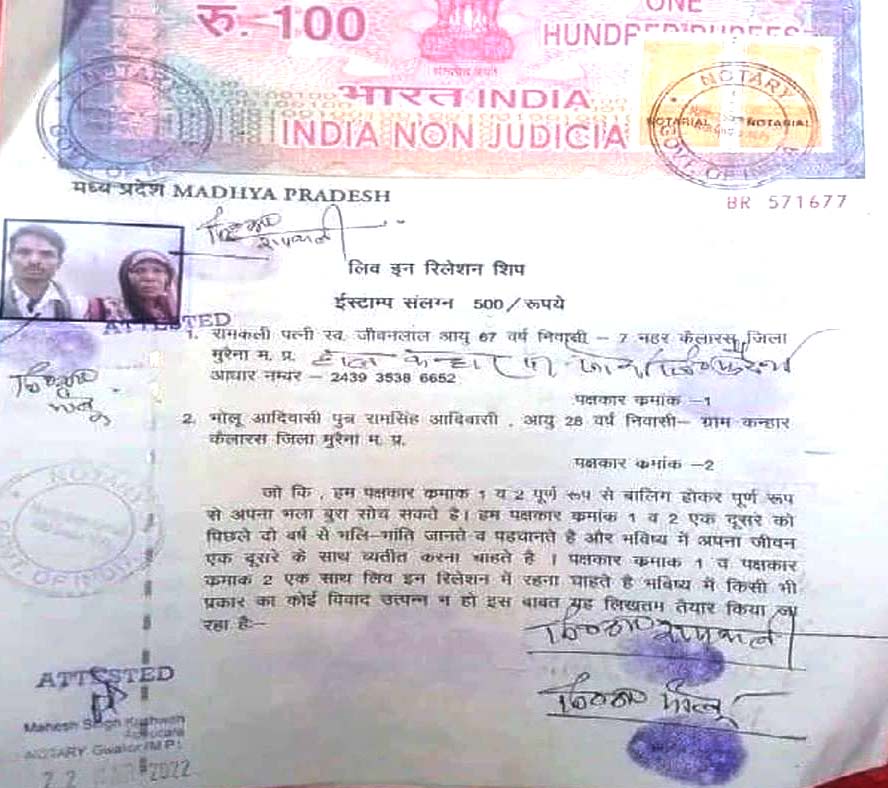 रु. 100
ONE
HUNDRED RUPEES
सत्यमेव जयते
भारत INDIA
INDIA NON JUDICIAL
NOTARY
GOVT. OF INDIA
NOTARY
NOTARIAL NOTARIAL
GOVT. OF INDIA
मध्य प्रदेश MADHYA PRADESH
BR 571677
रामकली
लिव इन रिलेशन शिप
ईस्टाम्प संलग्न 500/रूपये
ATTESTED
1. रामकली पत्नी स्व. जीवनलाल आयु 67 वर्ष निवासी – 7 नहर कैलारस, जिला
मुरैना म. प्र. हाल
आधार नम्बर – 2439 3538 6652
पक्षकार कमांक –1
2. भोलू आदिवासी पुत्र रामसिंह आदिवासी , आयु 28 वर्ष निवासी– ग्राम कन्हार
कैलारस जिला मुरैना म. प्र.
पक्षकार कमांक –2
भोलू
जो कि , हम पक्षकार कमाक 1 व 2 पूर्ण रूप से बालिग होकर पूर्ण रूप
से अपना भला बुरा सोच सकते है। हम पक्षकार कमांक 1 व 2 एक दूसरे को
पिछले दो वर्ष से भलि–भांति जानते व पहचानते है और भविष्य में अपना जीवन
एक दूसरे के साथ व्यतीत करना चाहते है । पक्षकार कमाक 1 व पक्षकार
कमाक 2 एक साथ लिव इन रिलेशन में रहना चाहते है भविष्य में किसी भी
प्रकार का कोई विवाद उत्पन्न न हो इस बाबत यह लिखतम तैयार किया जा
रहा है:–
NOTARY
GOVT. OF INDIA
रामकली
भोलू
ATTESTED
Mahesh Singh Kushwah
Advocate
NOTARY Gwalior (M.P.)
22 MAR 2022